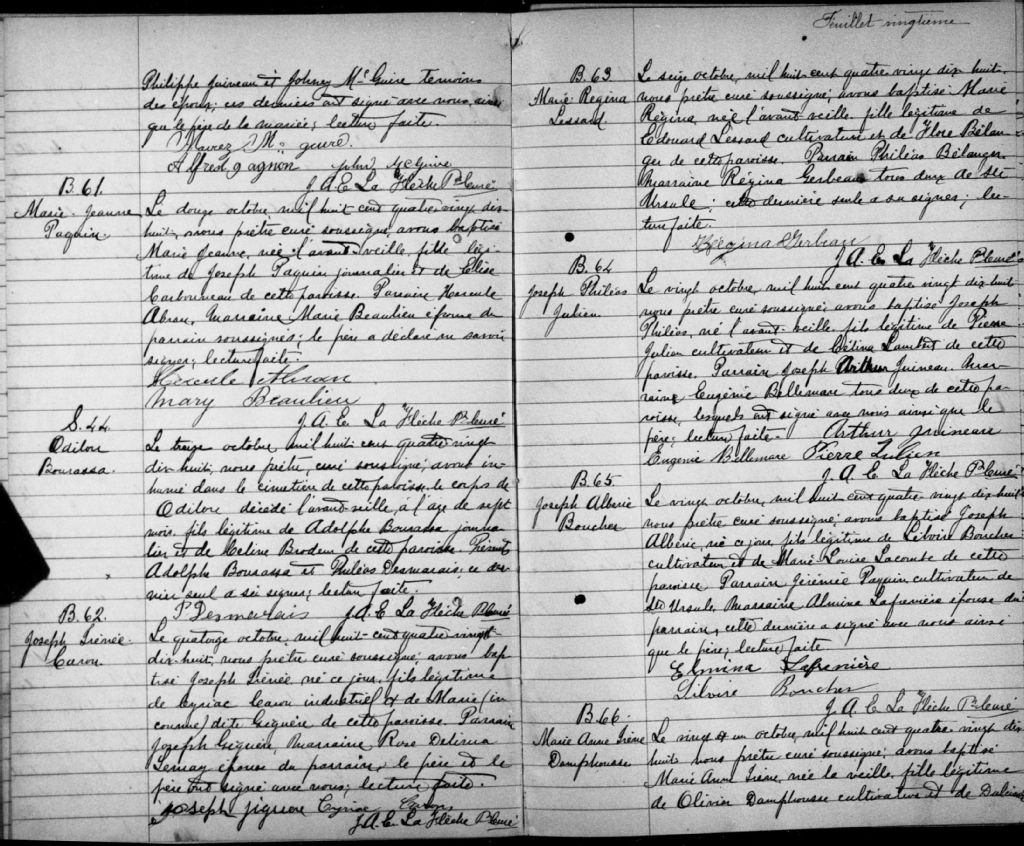 Philippe Juineau et Johney Mc Guire temoins
des epoux; ces derniers ont signé avec nous, ainsi
que le père de la mariée; lecture faite.
Mc guire
Alfred gagnon John McGuire
J. A. E. La Flèche Ptre curé
B. 61.
Marie Jeanne
Paquin.
Le douze octobre, mil huit cent quatre vingt dix-
huit, nous prêtre curé soussigné, avons baptisé
Marie Jeanne, née l'avant veille, fille légi-
time de Joseph Paquin journalier et de Elise
Carbonneau de cette paroisse. Parrain Hercule
Abran, marraine Marie Beaulieu épouse du
parrain soussignés; le père a déclaré ne savoir
signer; lecture faite.
Hercule Abran
Mary Beaulieu
J. A. E. La Flèche Ptre curé
S. 44
Odilon
Bourassa.
Le treize octobre, mil huit cent quatre vingt
dix-huit, nous prêtre, curé soussigné, avons in-
humé dans le cimetière de cette paroisse le corps de
Odilon décédé l'avant veille, à l'age de sept
mois, fils légitime de Adolphe Bourassa journa-
lier et de Celine Brodeur de cette paroisse. Présents
Adolphe Bourassa et Philéas Desmarais, ce der-
nier seul a su signer; lecture faite.
P Desmarais J. A. E. La Flèche Ptre curé
B. 62.
Joseph Irénée
Caron.
Le quatorze octobre, mil huit-cent quatre vingt
dix-huit, nous prêtre curé soussigné, avons bap-
tisé Joseph Irénée, né ce jour, fils légitime
de Cyriac Caron industriel et de Marie (in-
connue) dite Giguère de cette paroisse. Parrain
Joseph Giguère, marraine Rose Delima
Lemay épouse du parrain, le père et le
père ont signé avec nous; lecture faite.
Joseph jiguere Cyriac Caron
J. A. E. La Flèche Ptre curé
Feuillet vingtième
B. 63
Marie Regina
Lessard
Le seize octobre, mil huit-cent quatre vingt dix-huit,
nous prêtre curé soussigné, avons baptisé Marie
Régina, née l'avant-veille, fille légitime de
Edouard Lessard cultivateur et de Flore Bélan-
ger de cette paroisse. Parrain Philéas Bélanger,
marraine Régina Gerbeau tous deux de Ste
Ursule; cette dernière seule a su signer; lec-
ture faite.
Régina Gerbeau
J. A. E. La Flèche Ptre curé
B. 64
Joseph Philéas
Julien.
Le vingt octobre, mil huit cent quatre vingt dix-huit
nous prêtre curé soussigné, avons baptisé Joseph
Philéas, né l'avant-veille, fils légitime de Pierre
Julien cultivateur et de Célina Lambert de cette
paroisse. Parrain Joseph Arthur Juineau, mar-
raine Eugénie Bellemare tous deux de cette pa-
roisse, lesquels ont signé avec nous ainsi que le
père; lecture faite. Arthur Juineau
Eugenie Bellemare Pierre Julien
J. A. E. La Flèche Ptre curé
B. 65
Joseph Alberic
Boucher
Le vingt octobre, mil huit cent quatre vingt dix-huit
nous prêtre curé soussigné, avons baptisé Joseph
Albéric, né ce jour, fils légitime de Lilvoire Boucher
cultivateur et de Marie Louise Lacombe de cette
paroisse Parrain Jérémie Paquin cultivateur de
Ste Ursule, marraine Almina Lafrenière épouse du
parrain, cette dernière a signé avec nous ainsi
que le père; lecture faite
Elmina Lafrenière
Silvoire Boucher
J. A. E. La Flèche Ptre curé
B. 66.
Marie Anne Irène
Damphousse
Le vingt et un octobre, mil huit cent quatre vingt dix
huit nous prêtre curé soussigné, avons baptisé
Marie Anne Irène, née la veille, fille légitime
de Olivier Damphousse cultivateur et de